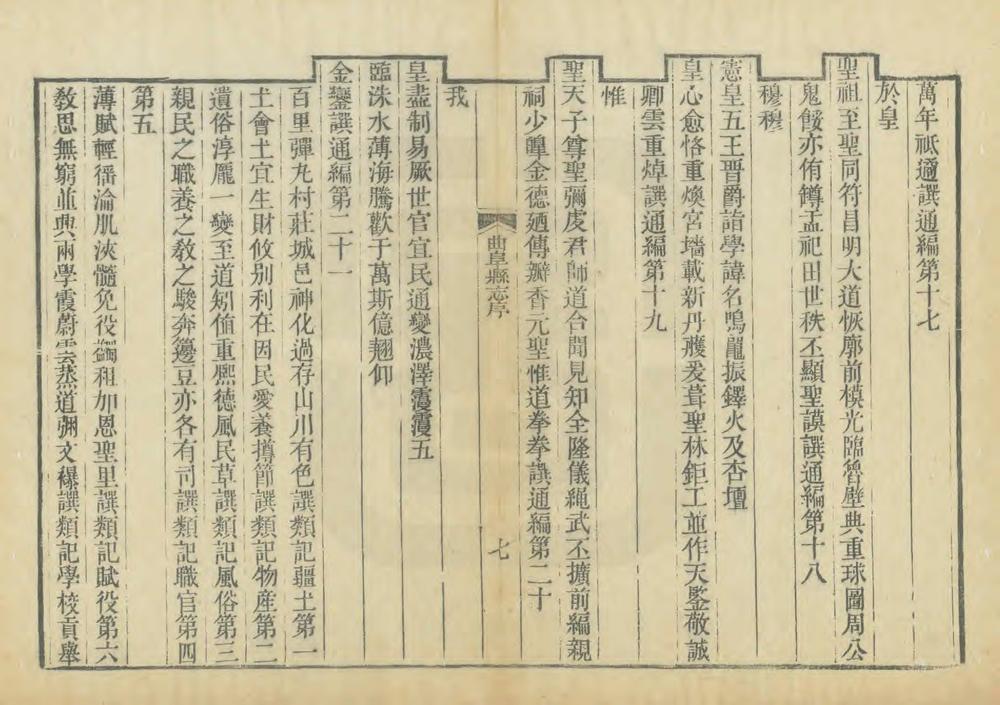 萬年祗遹譔通編第十七
於皇
聖祖至聖同符昌明大道恢廓前模光臨魯壁典重球圖周公
鬼餒亦侑罇盂祀田世秩丕顯聖謨譔通編第十八
穆穆
憲皇五王晋爵詣學諱名鳴鼉振鐸火及杏壇
皇心愈恪重煥宮墻載新丹雘爰葺聖林鉅工並作天鑒敬誠
卿雲重焯譔通編第十九
惟
聖天子尊聖彌虔君師道合聞見知全隆儀繩武丕擴前編親
祠少皥金德廼傳瓣香元聖惟道拳拳譔通編第二十
曲阜縣志序
七
我
皇盡制易厥世官宜民通變濃澤霞霞五
臨洙水薄海騰歡于萬斯億翹仰
金鑾譔通編第二十一
百里彈丸村莊城邑神化過存山川有色譔類記疆土第一
土會土宜生財攸别利在因民愛養撙節譔類記物産第二
遺俗淳厖一變至道矧値重熙德風民草譔類記風俗第三
親民之職養之教之駿奔籩豆亦各有司譔類記職官第四
第五
薄賦輕徭淪肌浹髓免役蠲租加恩聖里譔類記賦役第六
敎思無窮並典兩學霞蔚雲蒸道弸文襮譔類記學校貢舉